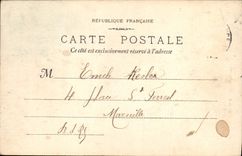 RÉPUBLIQUE FRANÇAISE
CARTE POSTALE
Ce côté est exclusivement réservé à l'adresse
M Emile
4 place St Ferréol
Marseille